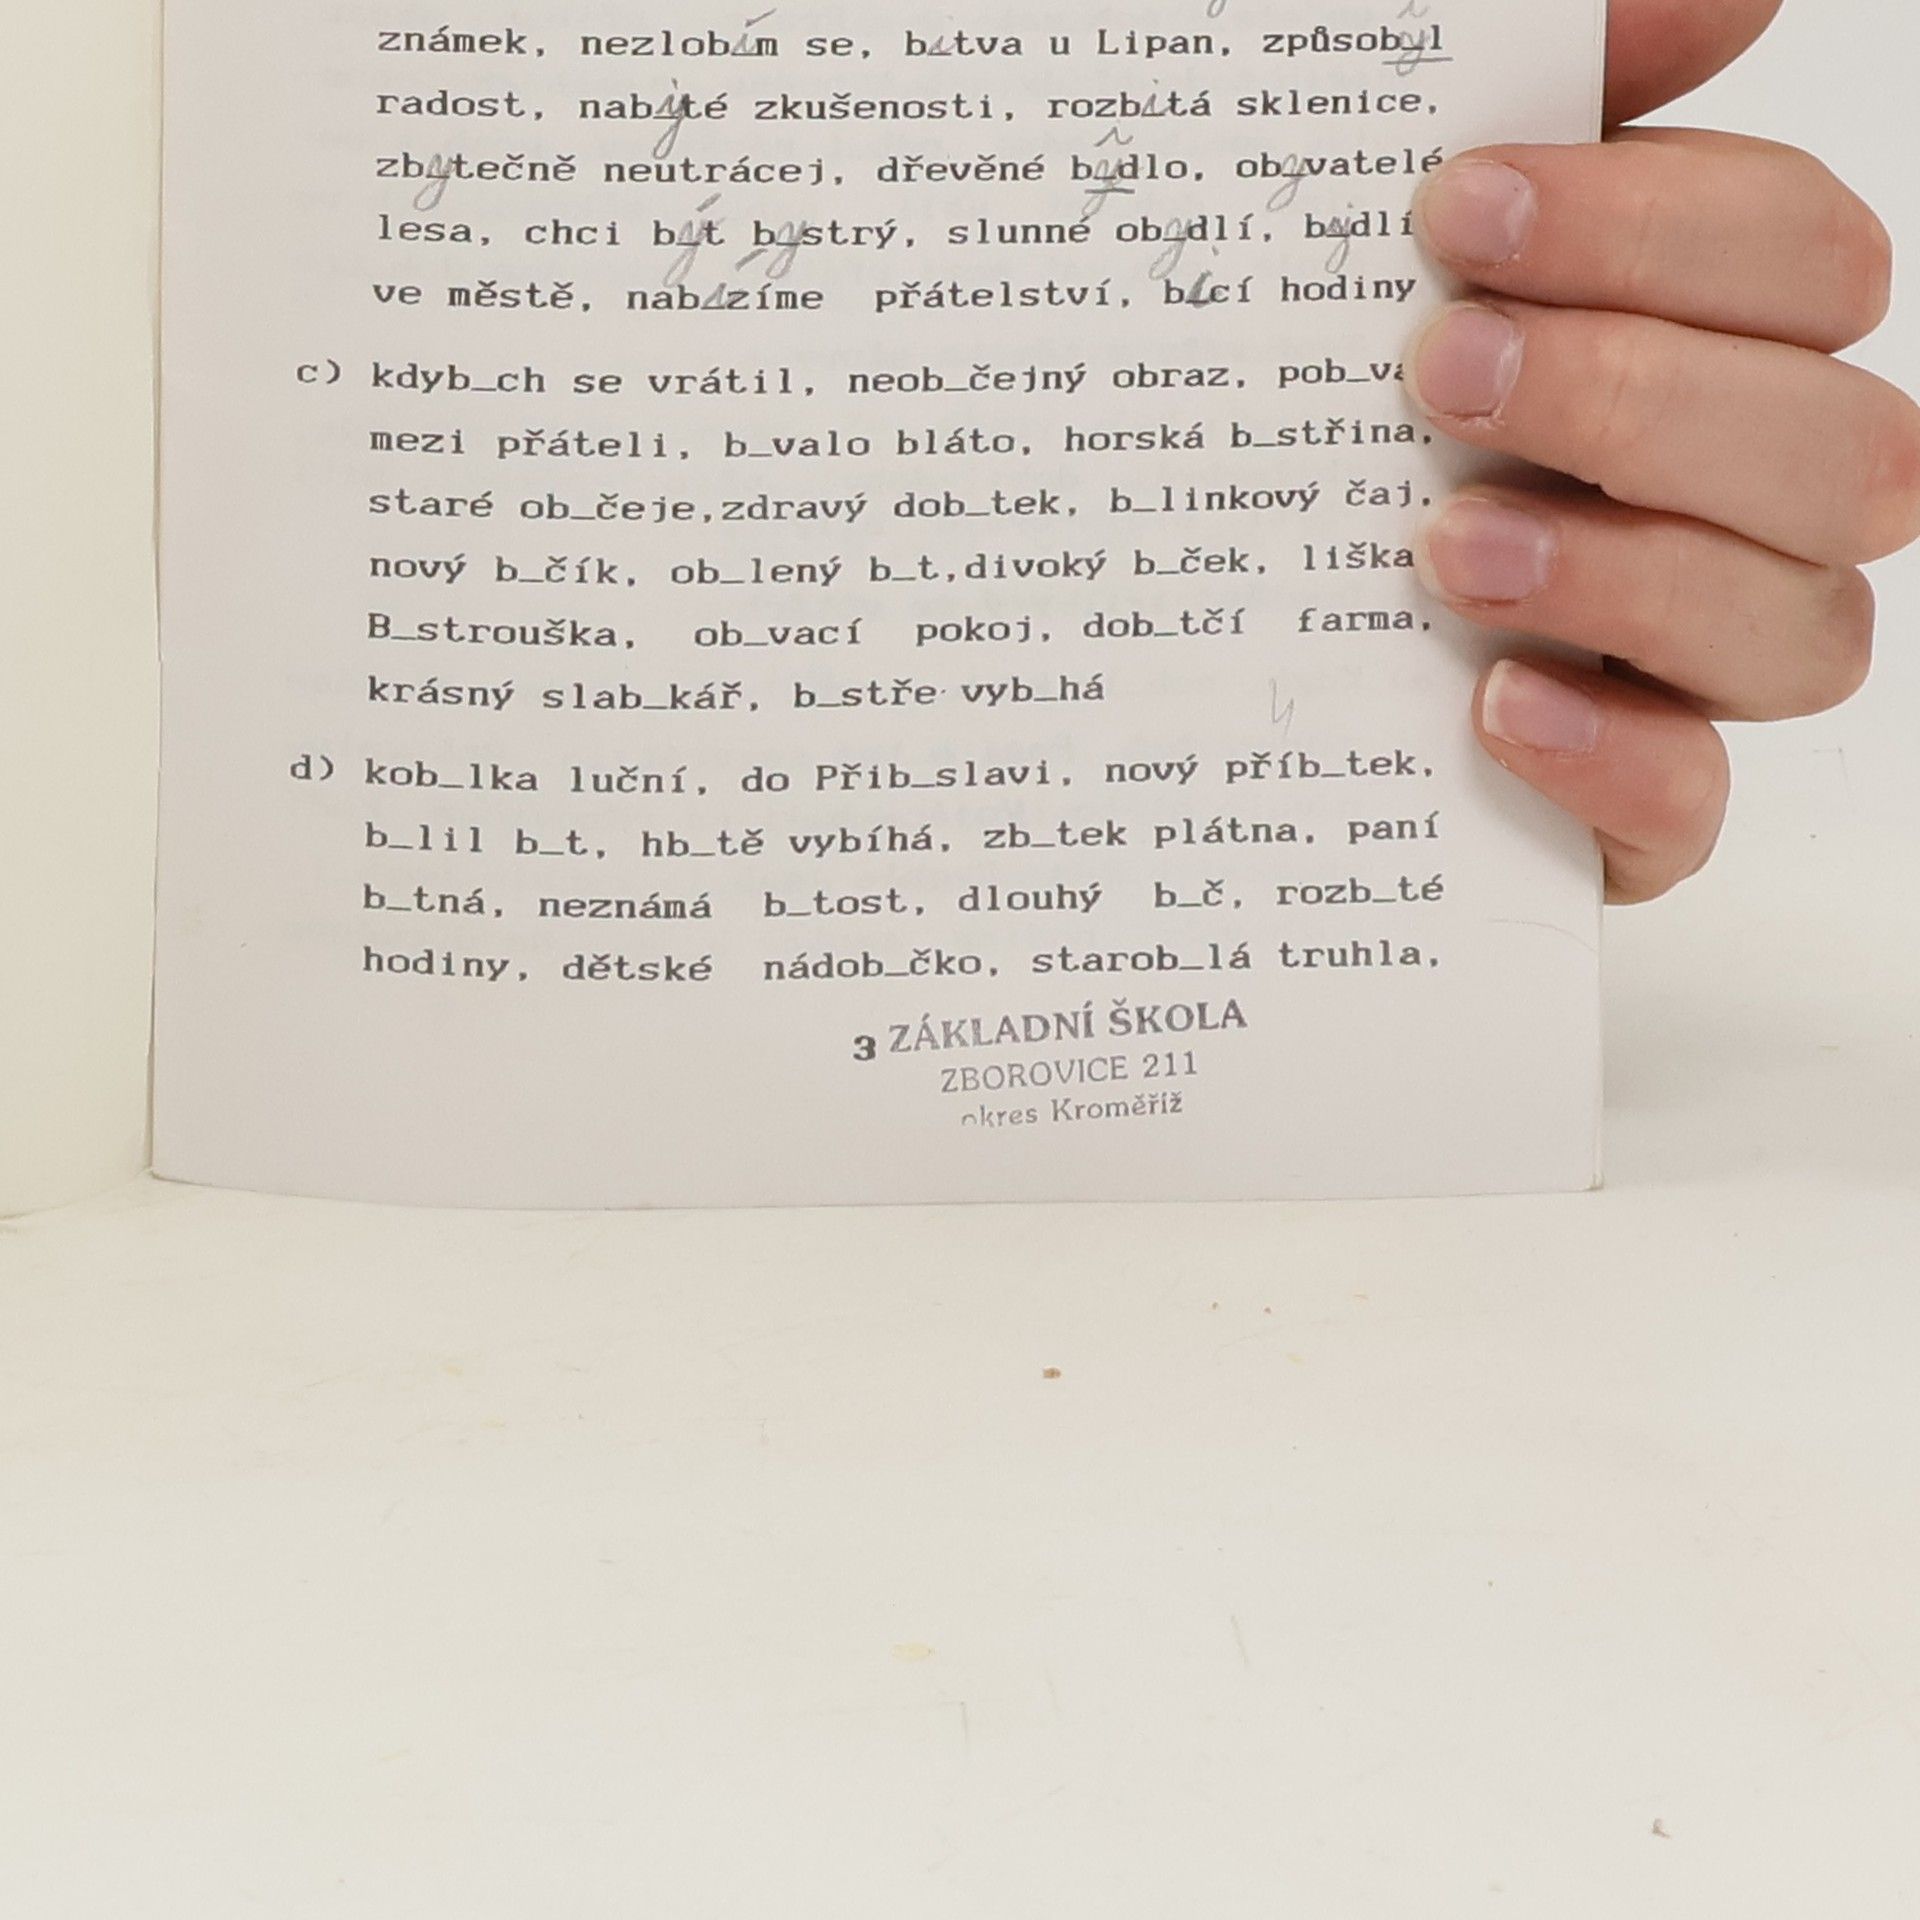 známek, nezlobím se, bitva u Lipan, způsobyl
radost, nabyté zkušenosti, rozbitá sklenice,
zbytečně neutrácej, dřevěné bydlo, obyvatelé
lesa, chci být bystrý, slunné obydlí, bydlí
ve městě, nabizíme přátelství, bicí hodiny
c) kdyb_ch se vrátil, neob_čejný obraz,
mezi přáteli, b_valo bláto, horská b_střina,
staré ob_čeje,zdravý dob_tek, b_linkový čaj,
nový b_čík, ob_lený b_t,divoký b_ček, liška
B_strouška, ob_vací pokoj, dob_tčí farma,
krásný slab_kář, b_stře vyb_há
d) kob_lka luční, do Přib_slavi, nový příb_tek,
b_lil b_t, hb_tě vybíhá, zb_tek plátna, paní
b_tná, neznámá b_tost, dlouhý b_č, rozb_té
hodiny, dětské nádob_čko, starob_lá truhla,
3 ZÁKLADNÍ ŠKOLA
ZBOROVICE 211
okres Kroměříž